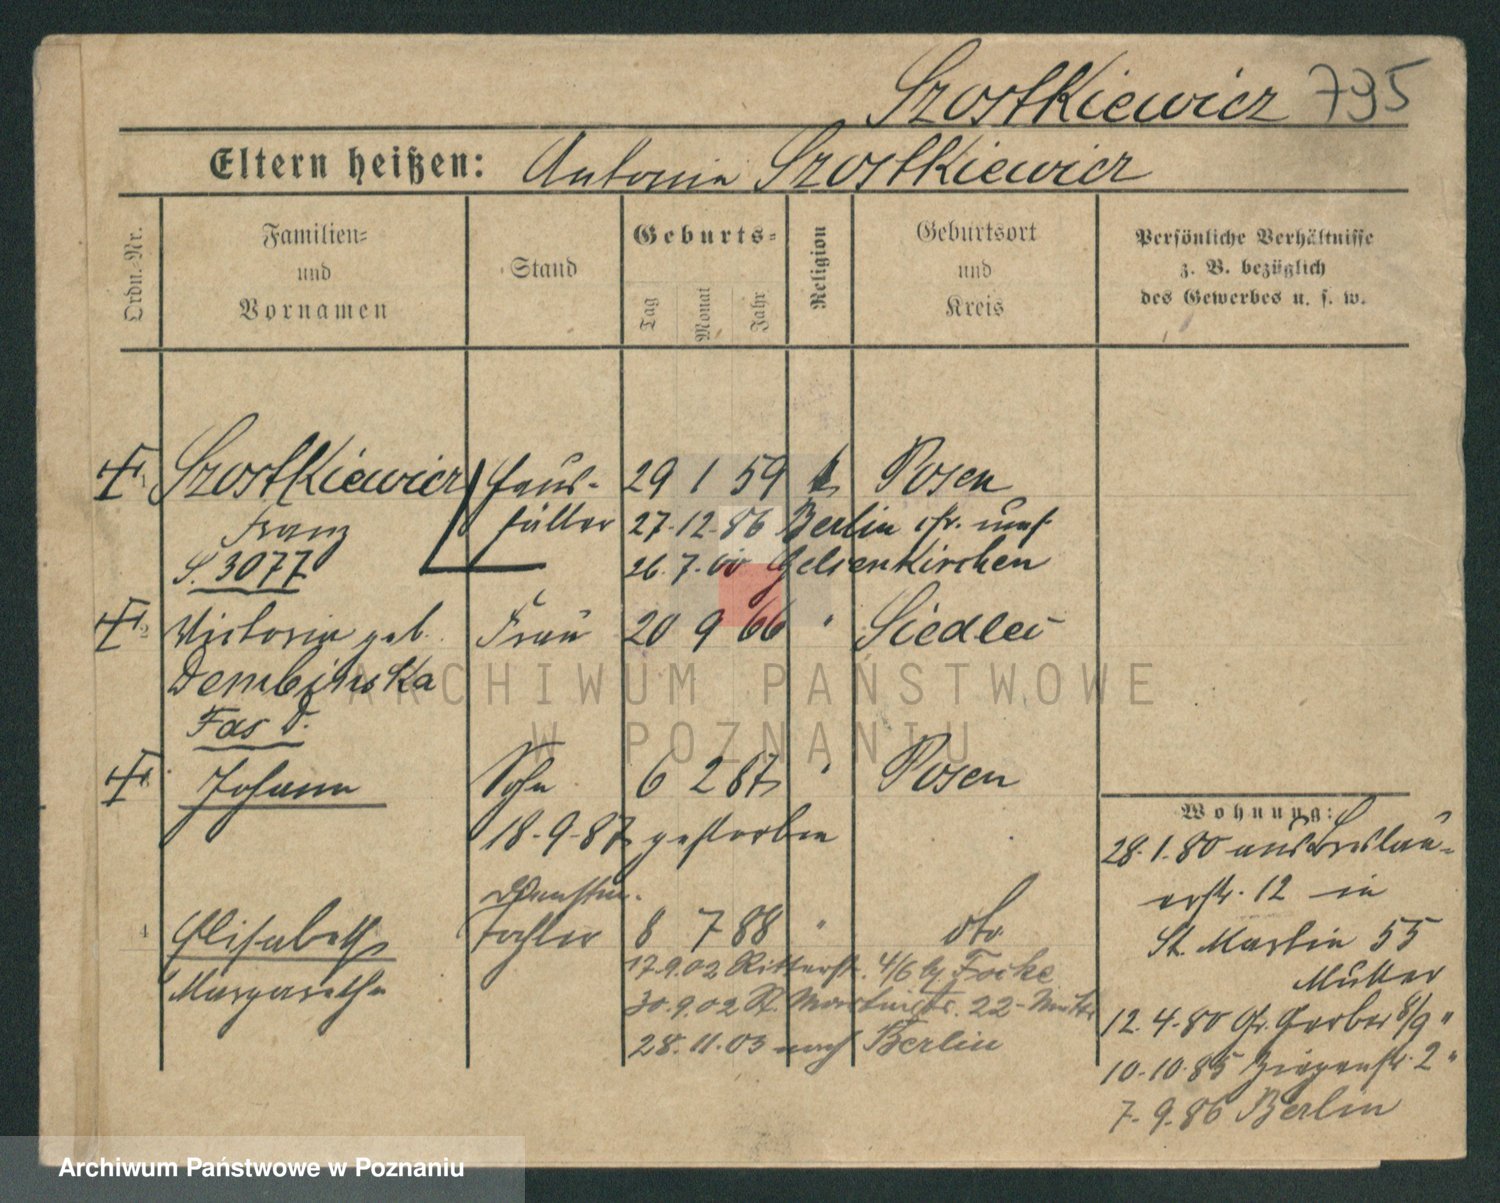 Szostkiewicz 795
Eltern heißen: Antonin Szostkiewicz
Ordn.-Nr.
Familien- und Vornamen
Stand
Geburts-
Tag Monat Jahr
Religion
Geburtsort und Kreis
Persönliche Verhältnisse z. B. bezüglich des Gewerbes u. s. w.
1 Szostkiewicz Haus- 29 1 59 k Posen
Franz hälter 27.12.86 Berlin
S. 3077 26.7.00 Gelsenkirchen
2 Victoria geb. Frau 20 9 66 " Siedlec
Dembinska
Fas. D.
3 Johann Sohn 6 2 87 " Posen
18.9.87 gestorben
4 Elisabeth Tochter 8 7 88 " dto
Margarethe 17.9.02 Ritterstr. 4/6 by Focke
30.9.02 St. Martinstr. 22 - Mutter
28.11.03 nach Berlin
Wohnung:
28.1.80 aus Breslau-
erstr. 12 in
St. Martin 55
Mutter
12.4.80 Gr. Gerber 8/9 "
10.10.85 Ziegenstr. 2 "
7.9.86 Berlin
ARCHIWUM PAŃSTWOWE
W POZNANIU
Archiwum Państwowe w Poznaniu